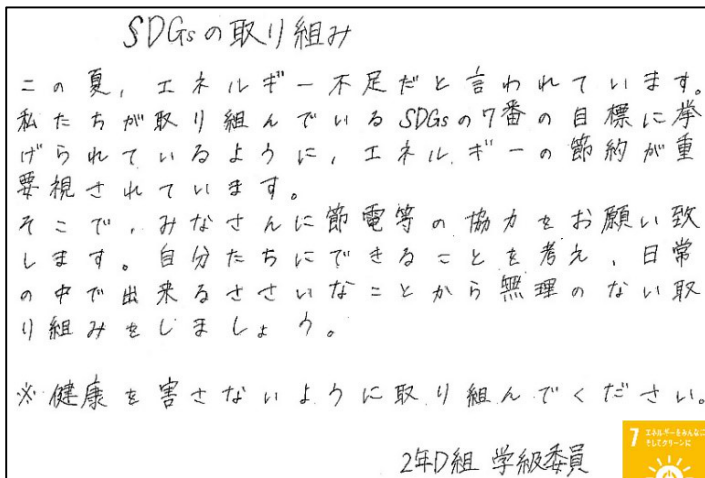 SDGsの取り組み
この夏,エネルギー不足だと言われています。
私たちが取り組んでいるSDGsの7番の目標に挙
げられているように,エネルギーの節約が重
要視されています。
そこで,みなさんに節電等の協力をお願い致
します。自分たちにできることを考え、日常
の中で出来るささいなことから無理のない取
り組みをしましょう。
※健康を害さないように取り組んでください。
2年D組 学級委員
7 エネルギーをみんなに
そしてクリーンに